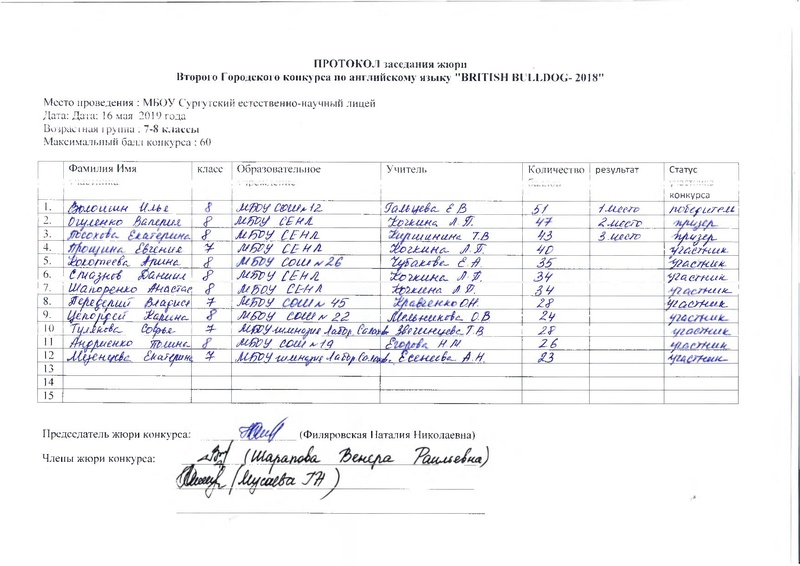 ПРОТОКОЛ заседания жюри
Второго Городского конкурса по английскому языку "BRITISH BULLDOG- 2018"
Место проведения : МБОУ Сургутский естественно-научный лицей
Дата: Дата: 16 мая 2019 года
Возрастная группа : 7-8 классы
Максимальный балл конкурса : 60
Фамилия Имя класс Образовательное Учитель Количество результат Статус
конкурса
1. Волошин Илья 8 МБОУ СОШ №12 Гальцева Е В 51 1 место победитель
2. Валерия 8 МБОУ СЕНЛ Кочкина Л.П. 47 2 место призер
3. Екатерина 8 МБОУ СЕНЛ Киршинина Т.В 43 3 место призер
4. Прощина Евгения 7 МБОУ СЕНЛ Кочкина Л.П. 40 участник
5. Колотеева Арина 8 МБОУ СОШ №26 Чубакова Е.А. 35 участник
6. Даниил 8 МБОУ СЕНЛ Кочкина Л.П. 34 участник
7. Шапоренко Анастас 8 МБОУ СЕНЛ Кочкина Л.П. 34 участник
8. 7 МБОУ СОШ № 45 Кравченко О.Н. 28 участник
9. Карина 8 МБОУ СОШ № 22 Мельникова О.В 24 участник
10 Тулякова Софья 7 МБОУ Звегинцева Т.В 28 участник
11 Андриенко Полина 8 МБОУ СОШ №19 Егорова Н М 26 участник
12 Мезенцева Екатерина 7 МБОУ Есенеева А.Н. 23 участник
13
14
15
Председатель жюри конкурса: (Филяровская Наталия Николаевна)
Члены жюри конкурса: (Шарапова Венера Раильевна)
(Мусаева ГН)